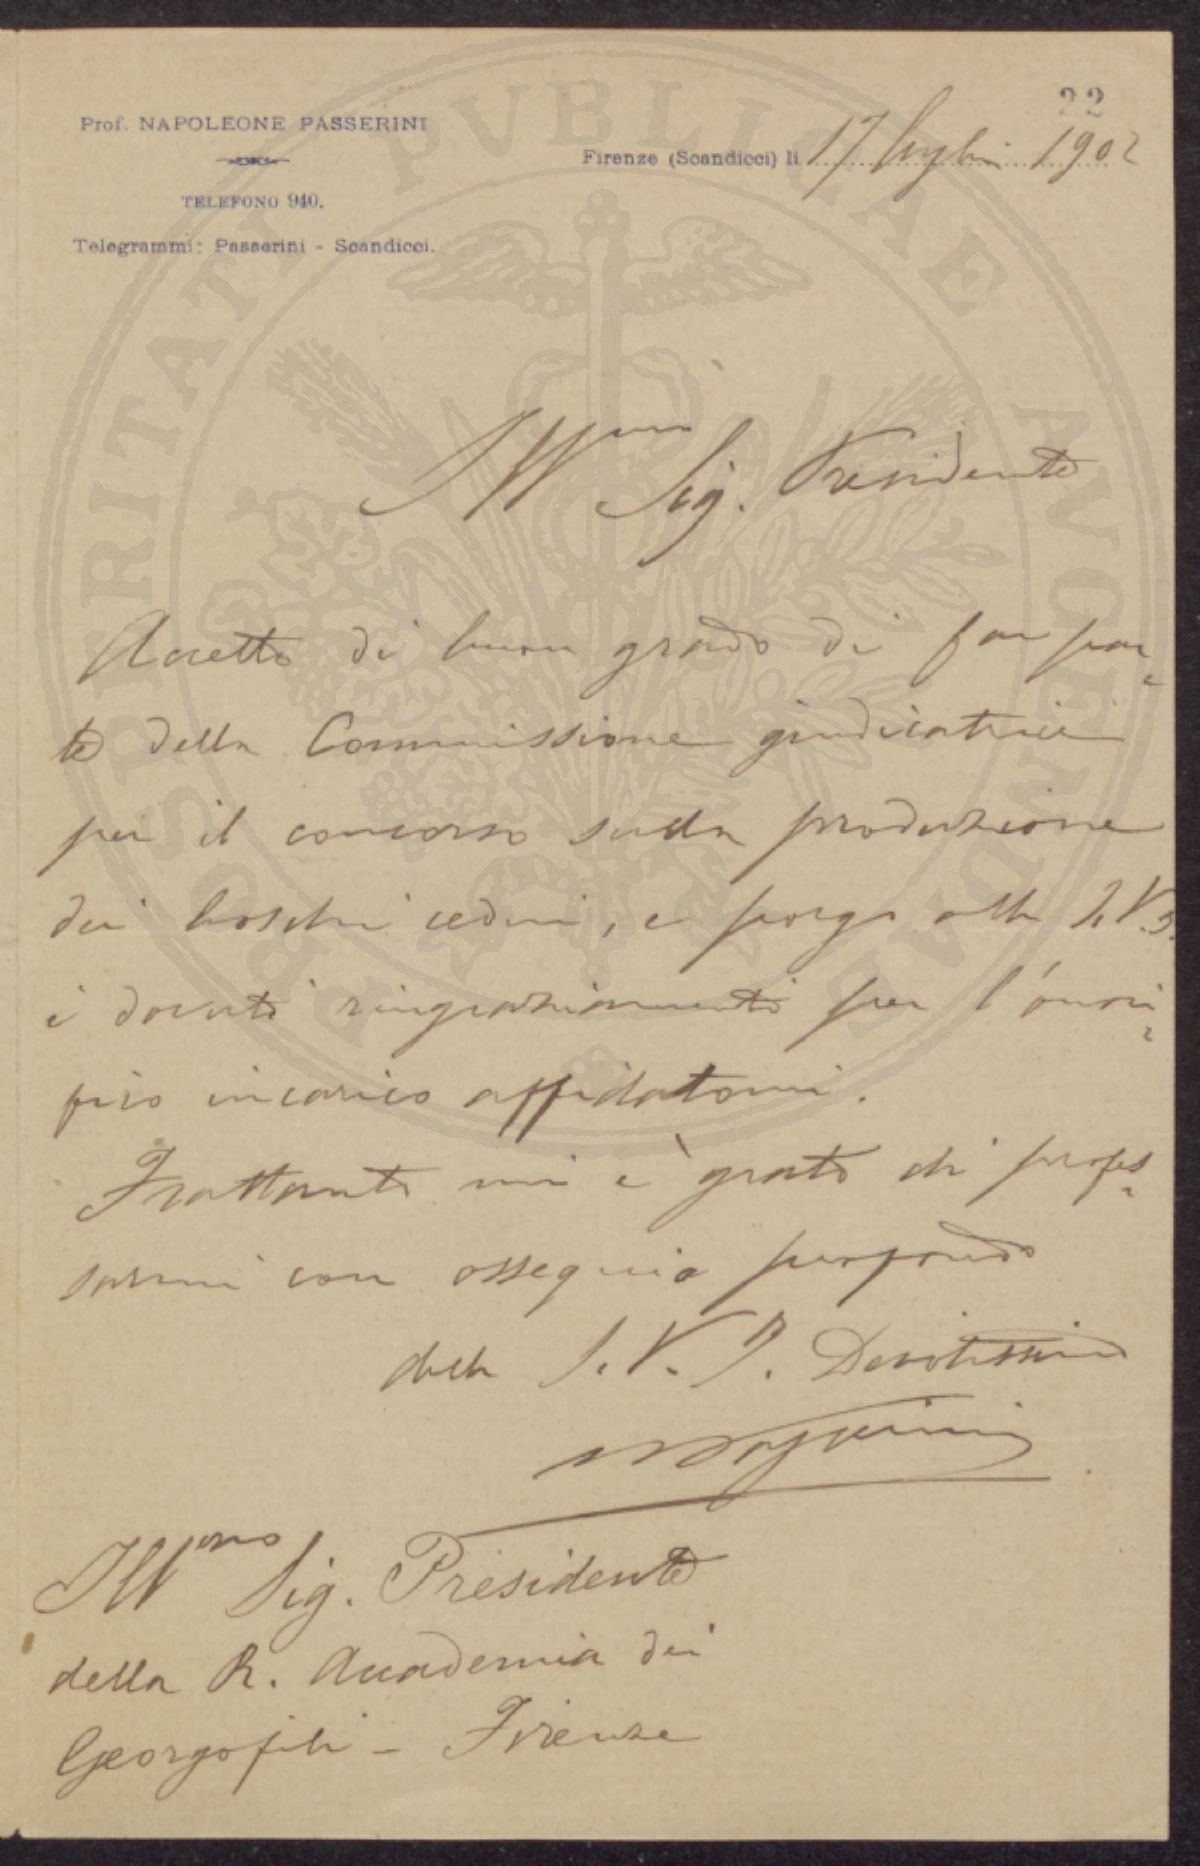 22
Prof. NAPOLEONE PASSERINI
TELEFONO 940.
Telegrammi: Passerini - Scandicci.
Firenze (Scandicci) li 17 luglio 1902
PROSPERITATI PVBLICAE AVGENDAE
Ill^mo Sig. Presidente
Accetto di buon grado di far par-
te della Commissione giudicatrice
per il concorso sulla produzione
dei boschi cedui, e porgo alla S.V.I.
i dovuti ringraziamenti per l'onori-
fico incarico affidatomi.
Frattanto mi è grato di profes-
sarmi con ossequio profondo
della S. V. I. Devotissimo
NPasserini
Ill^mo Sig. Presidente
della R. Accademia dei
Georgofili - Firenze